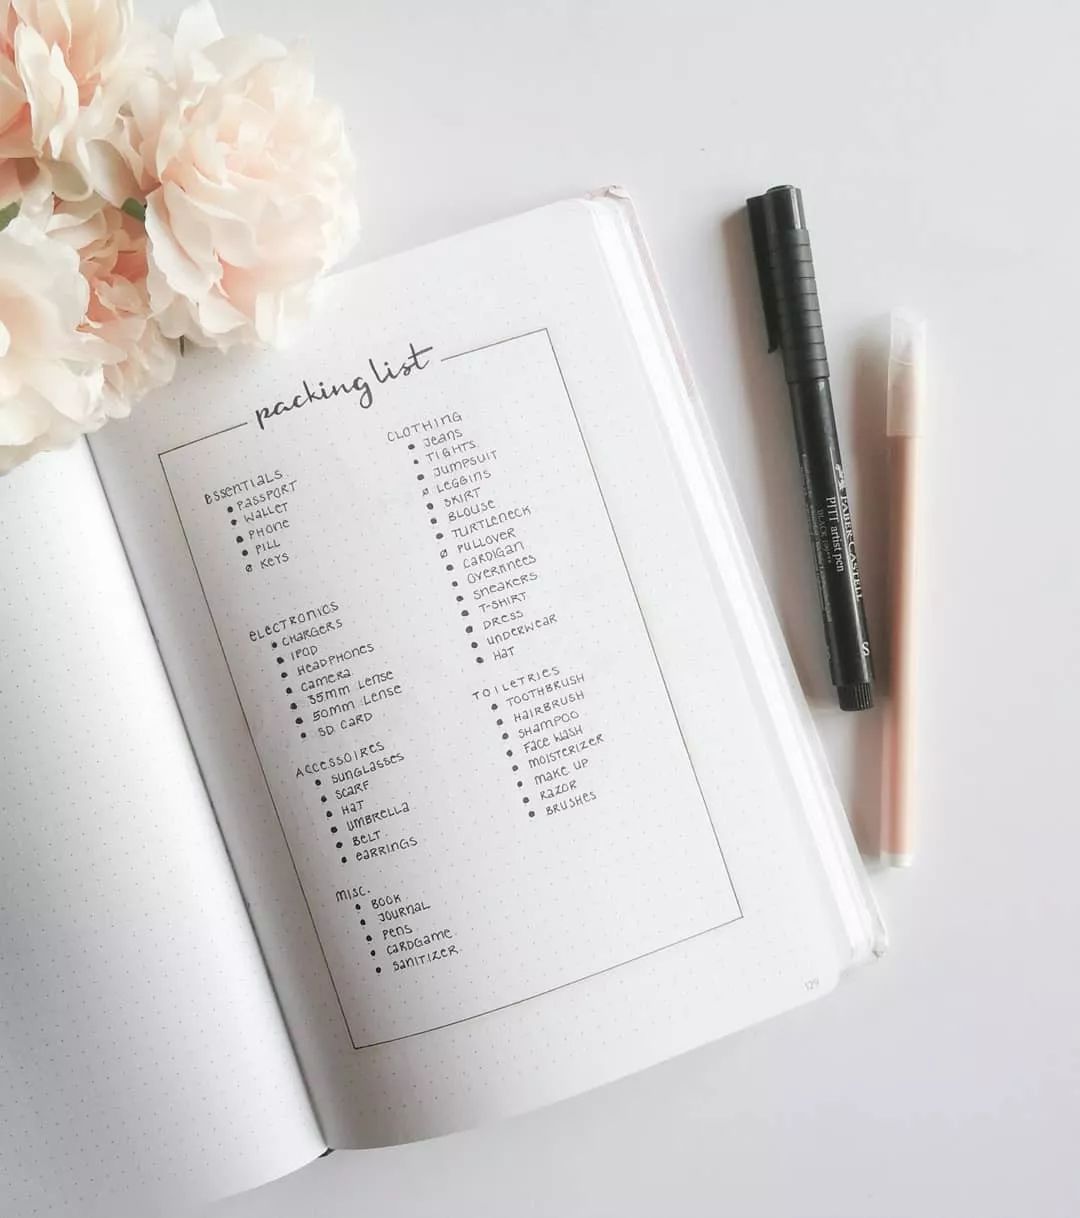 packing list
ESSENTIALS
• PASSPORT
• WALLET
• PHONE
• PILL
ø KEYS
ELECTRONICS
• CHARGERS
• IPOD
• HEADPHONES
• CAMERA
• 35mm LENSE
• 50mm LENSE
• SD CARD
ACCESSOIRES
• SUNGLASSES
• SCARF
• HAT
• UMBRELLA
• BELT
• EARRINGS
MISC.
• BOOK
• JOURNAL
• PENS
• CARDGAME
• SANITIZER
CLOTHING
• JEANS
• TIGHTS
• JUMPSUIT
ø LEGGINS
• SKIRT
• BLOUSE
• TURTLENECK
ø PULLOVER
• CARDIGAN
• OVERKNEES
• SNEAKERS
• T-SHIRT
• DRESS
• UNDERWEAR
• HAT
TOILETRIES
• TOOTHBRUSH
• HAIRBRUSH
• SHAMPOO
• FACE WASH
• MOISTERIZER
• MAKE UP
• RAZOR
• BRUSHES
129
FABER-CASTELL
PITT artist pen
S